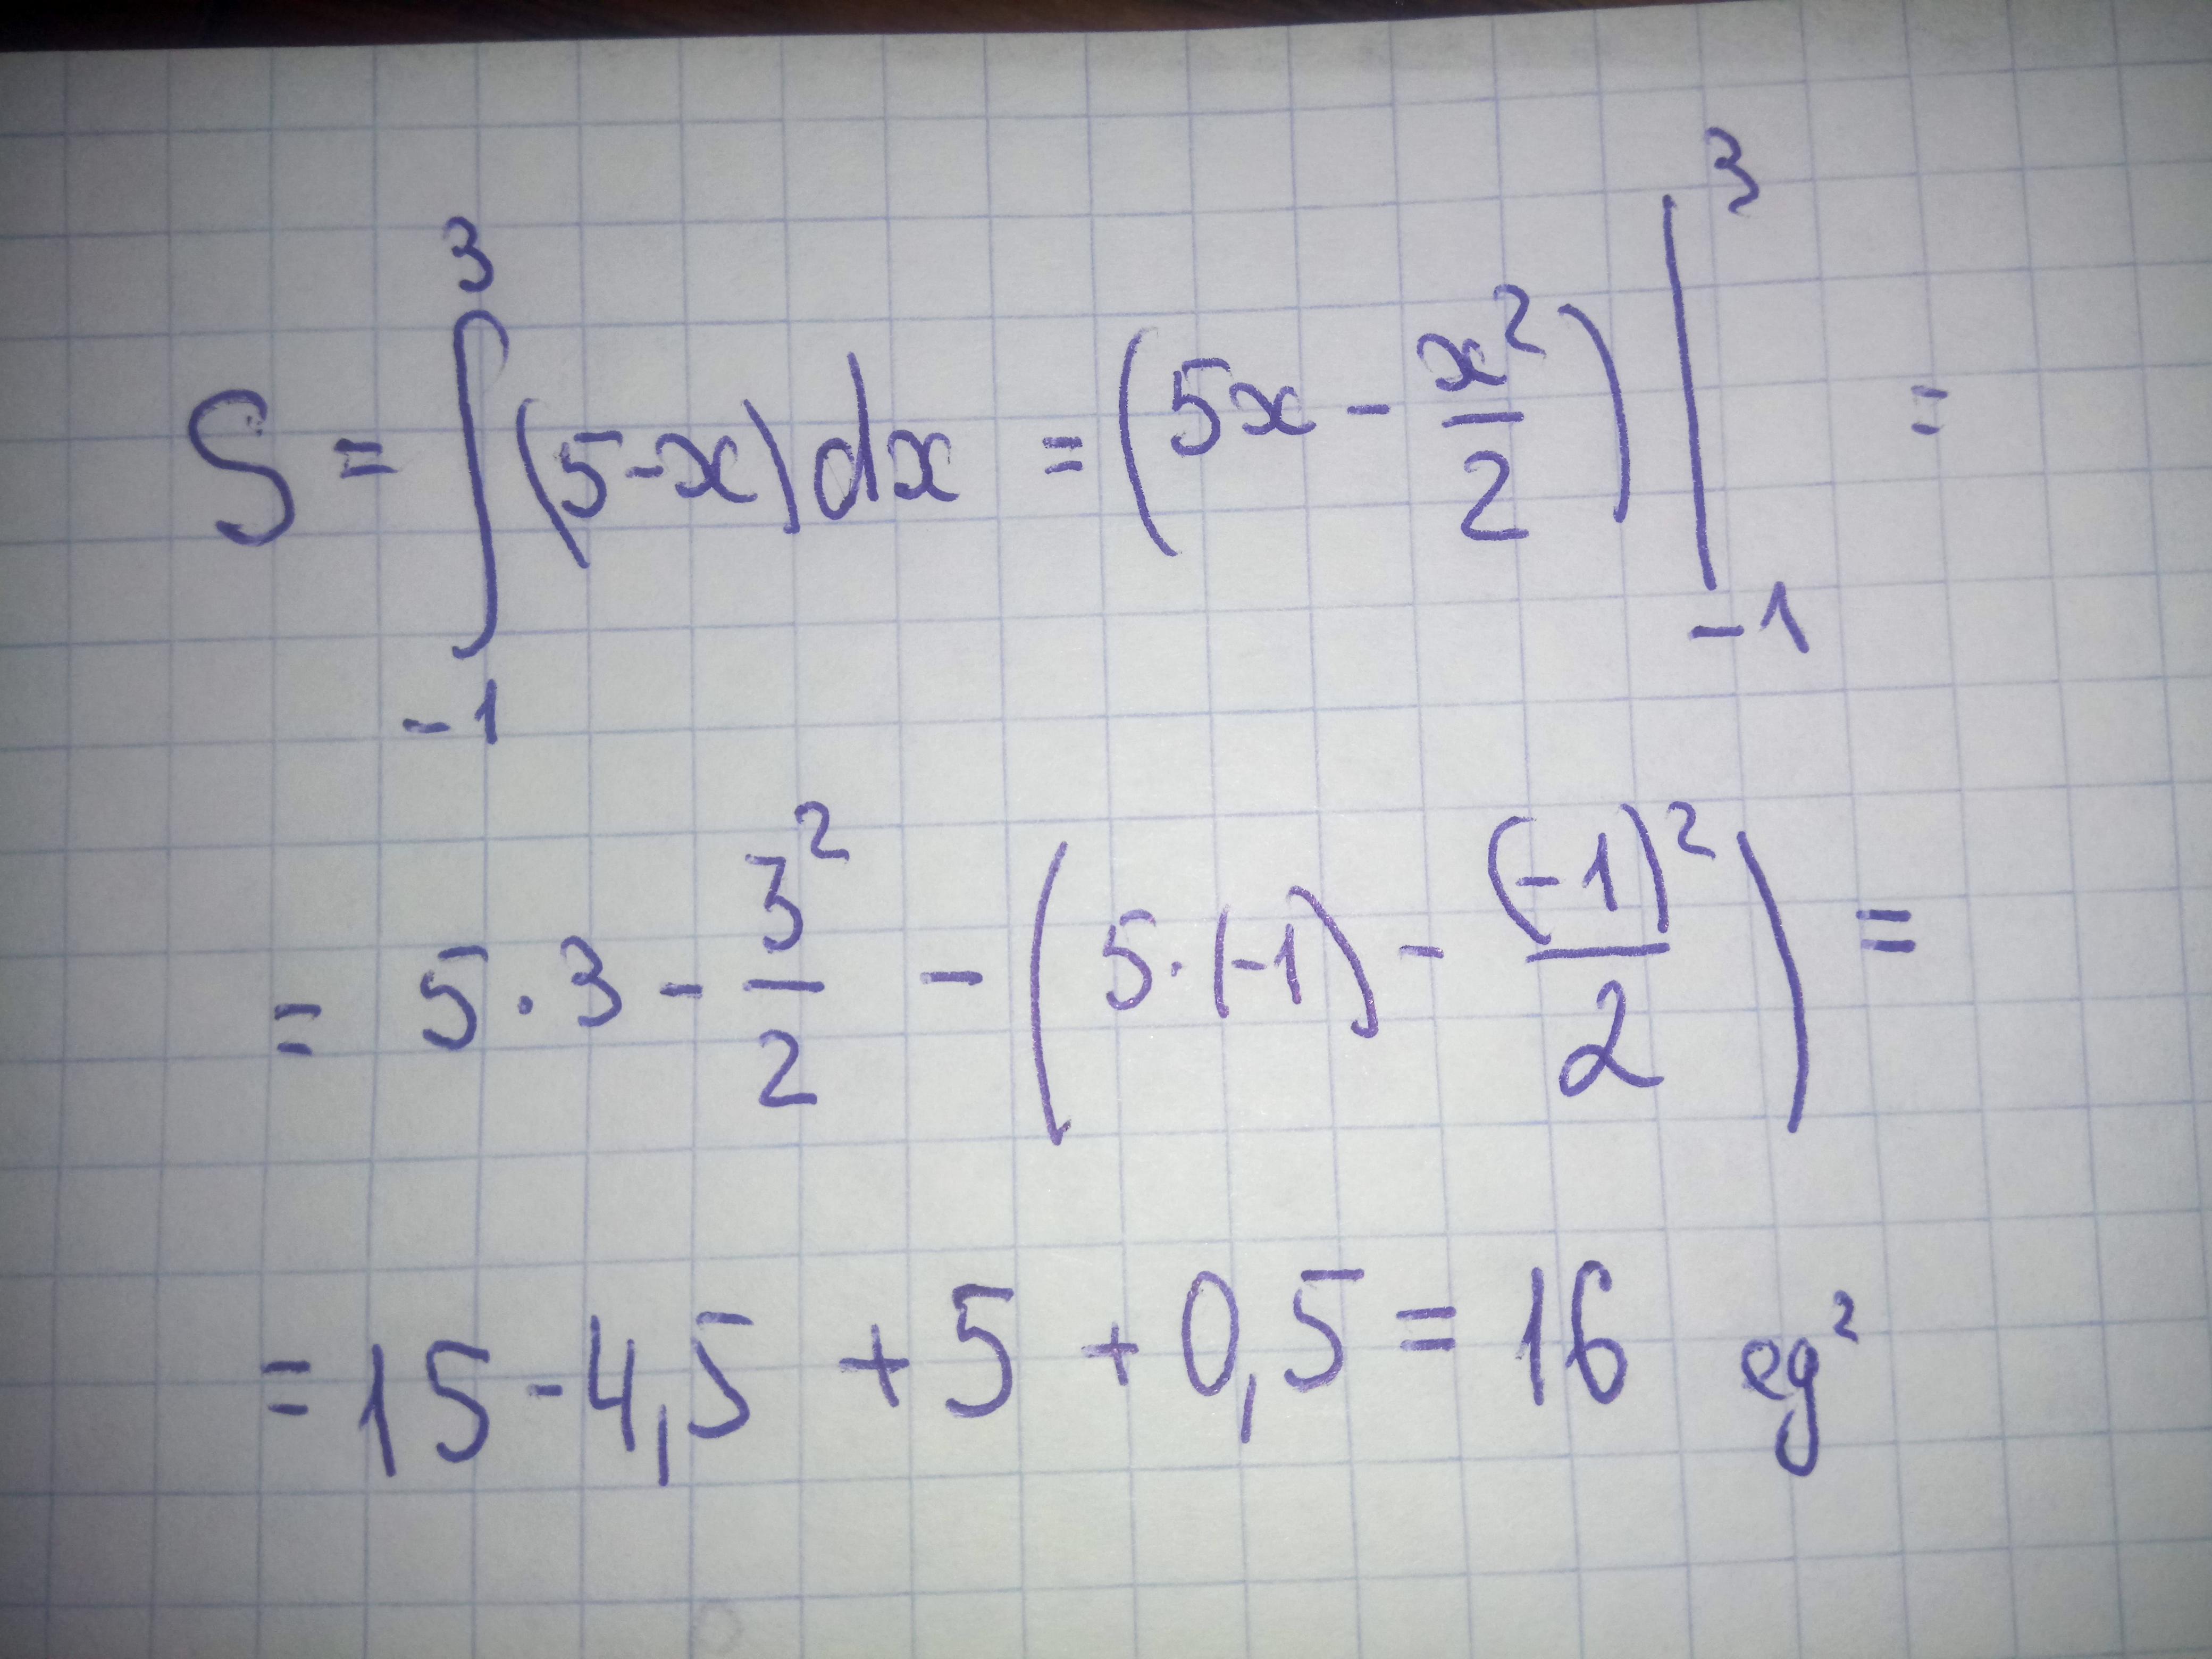 S = ∫₋₁³ (5-x)dx = (5x - x²/2) |₋₁³ =
= 5·3 - 3²/2 - (5·(-1) - (-1)²/2) =
= 15 - 4,5 + 5 + 0,5 = 16 eg²